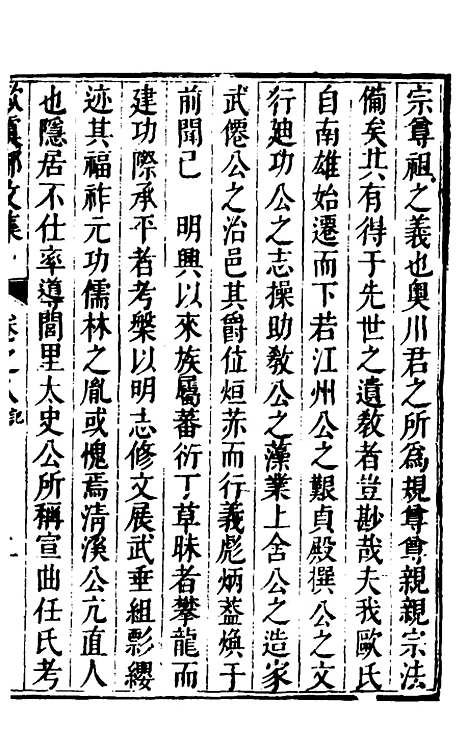 宗尊祖之義也奥川君之所為規尊尊親親宗法
備矣其有得于先世之遺敎者豈尠哉夫我歐氏
自南雄始遷而下若江州公之艱貞殿撰公之文
行廸功公之志操助敎公之藻業上舍公之造家
武僊公之治邑其爵位烜赤而行義彪炳益煥于
前聞已　明興以來族屬蕃衍丁草昧者攀龍而
建功際承平者考槃以明志修文展武垂組影纓
迹其福祚元功儒林之胤或愧焉清溪公亢直人
也隱居不仕率導閭里太史公所稱宣曲任氏考
歐虞部文集
卷之八記